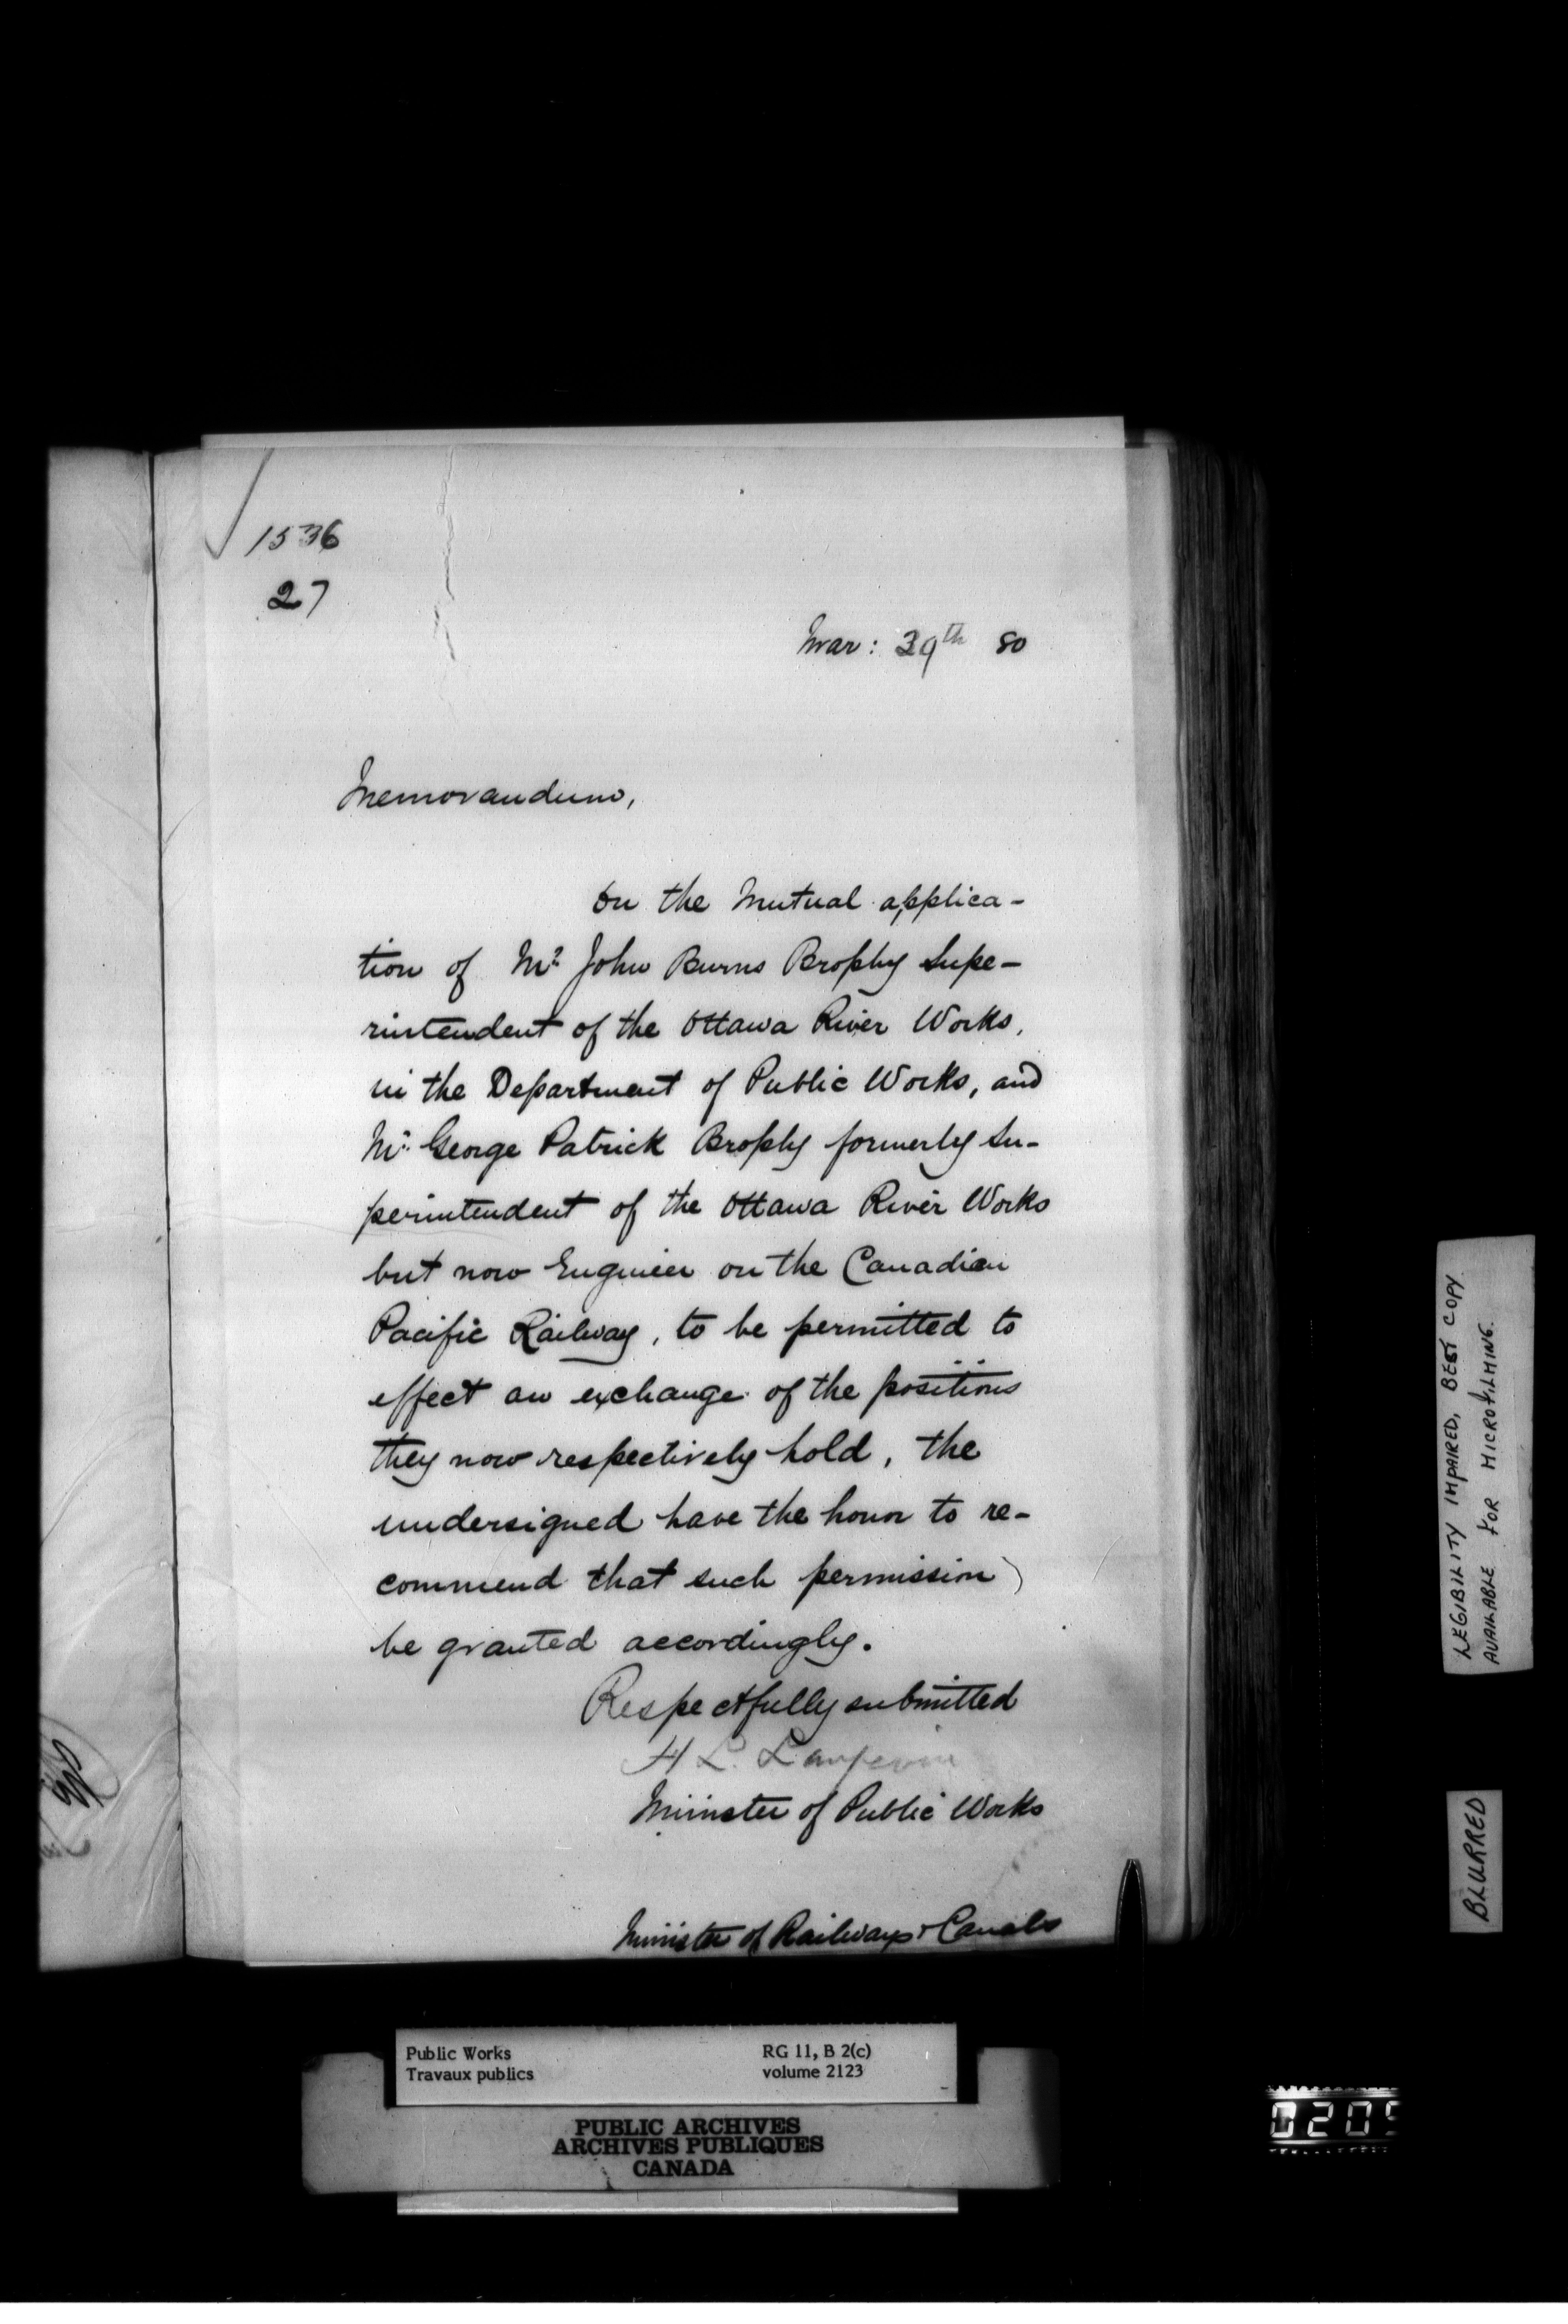 1536
27
Mar: 29th 80
Memorandum,
On the Mutual applica-
tion of Mr John Burns Brophy Supe-
rintendent of the Ottawa River Works,
in the Department of Public Works, and
Mr George Patrick Brophy formerly Su-
perintendent of the Ottawa River Works
but now Engineer on the Canadian
Pacific Railway, to be permitted to
effect an exchange of the positions
they now respectively hold, the
undersigned have the honor to re-
commend that such permission
be granted accordingly.
Respectfully submitted
H L. Langevin
Minister of Public Works
Minister of Railways & Canals
LEGIBILITY IMPAIRED, BEST COPY
AVAILABLE FOR MICROFILMING.
BLURRED
Public Works
Travaux publics
RG 11, B 2(c)
volume 2123
PUBLIC ARCHIVES
ARCHIVES PUBLIQUES
CANADA
0205